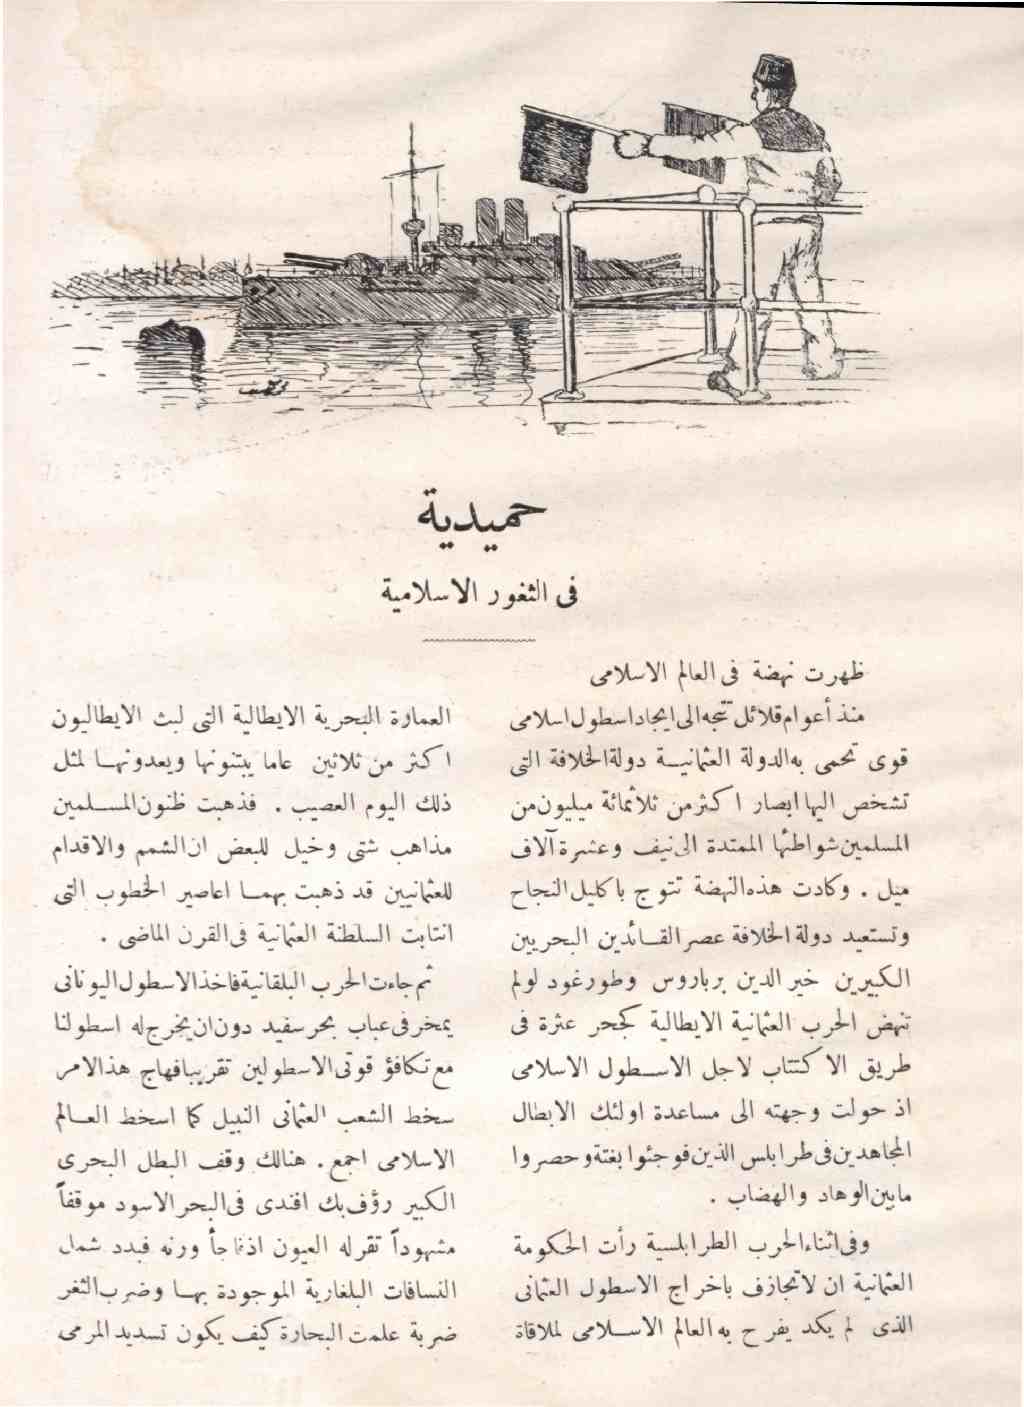 حميدية
فى الثغور الاسلامية
ظهرت نهضة فى العالم الاسلامى
منذ أعوام قلائل تتجه الى ايجاد اسطول اسلامى
قوى تحمى به الدولة العثمانيـة دولة الخلافة التى
تشخص اليها ابصار اكثر من ثلاثمائة ميليون من
المسلمين شواطئها الممتدة الى نيف وعشرة آلاف
ميل . وكادت هذه النهضة تتوج باكليل النجاح
وتستعيد دولة الخلافة عصر القـائدين البحريين
الكبيرين خير الدين برباروس وطورغود لولم
تنهض الحرب العثمانية الايطالية كحجر عثرة فى
طريق الاكتتاب لاجل الاسـطول الاسلامى
اذ حولت وجهته الى مساعدة اولئك الابطال
المجاهدين فى طرابلس الذين فوجئوا بغتة وحصروا
مابين الوهاد والهضاب .
وفى اثناء الحرب الطرابلسية رأت الحكومة
العثمانية ان لاتجازف باخراج الاسطول العثمانى
الذى لم يكد يفرح به العالم الاسـلامى لملاقاة
العمارة البحرية الايطالية التى لبث الايطاليون
اكثر من ثلاثين عاما يبتنونها ويعدونهـا لمثل
ذلك اليوم العصيب . فذهبت ظنون المسـلمين
مذاهب شتى وخيل للبعض ان الشمم والاقدام
للعثمانيين قد ذهبت بهمـا اعاصير الخطوب التى
انتابت السلطنة العثمانية فى القرن الماضى .
ثم جاءت الحرب البلقانية فاخذ الاسطول اليونانى
يمخر فى عباب بحر سفيد دون ان يخرج له اسطولنا
مع تكافؤ قوتى الاسطولين تقريبا فهاج هذا الامر
سخط الشعب العثمانى النبيل كما اسخط العـالم
الاسلامى اجمع . هنالك وقف البطل البحرى
الكبير رؤف بك افندى فى البحر الاسود موقفاً
مشهوداً تقر له العيون اذ فاجأ ورنه فبدد شمل
النسافات البلغارية الموجودة بهـا وضرب الثغر
ضربة علمت البحارة كيف يكون تسديد المرمى